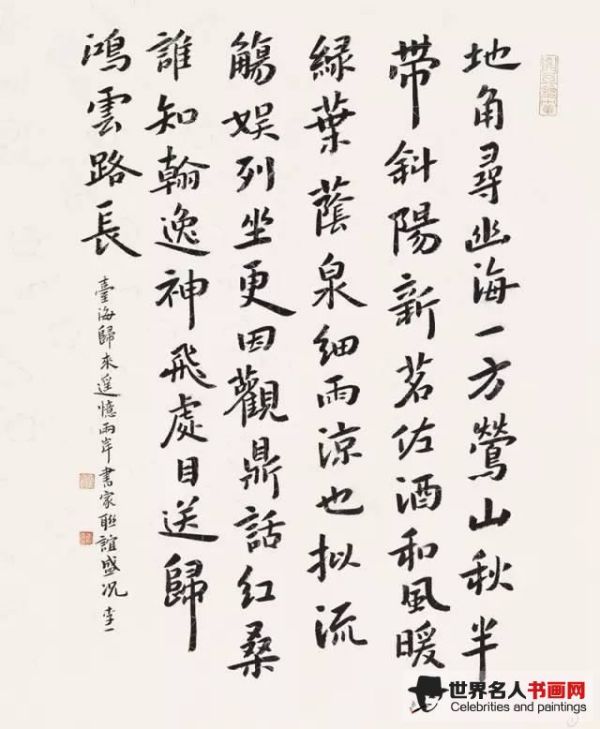 地角尋幽海一方鶯山秋半
帶斜陽新茗佐酒和風暖
緑葉蔭泉細雨涼也拟流
觴娱列坐更因觀鼎話紅桑
誰知翰逸神飛處目送歸
鴻雲路長
臺海歸來遥憶兩岸書家联誼盛况 李一
世界名人书画网
Celebrities and paintings